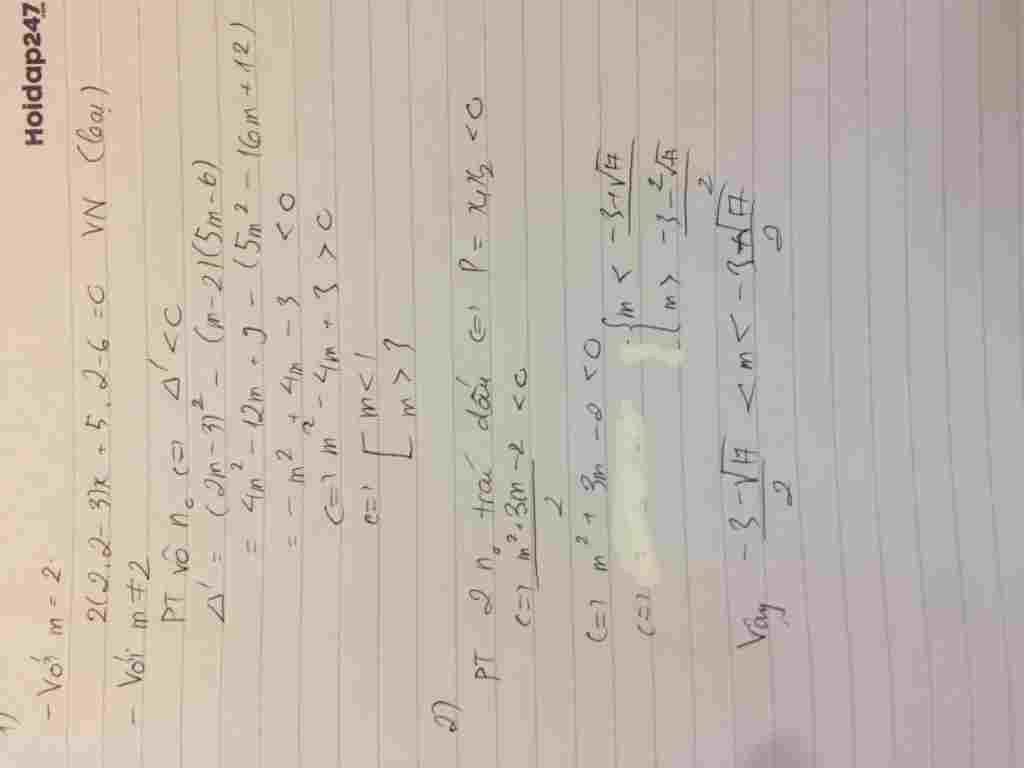 Hoidap247
1)
- Với m = 2
2(2.2-3)x + 5.2-6 = 0 VN (loại)
- Với m ≠ 2
PT vô n₀ <=> Δ' < 0
Δ' = (2m-3)² - (m-2)(5m-6)
= 4m² - 12m + 9 - (5m² - 16m + 12)
= -m² + 4m - 3 < 0
<=> m² - 4m + 3 > 0
<=> [ m < 1
m > 3
2)
PT 2 n₀ trái dấu <=> P = x₁x₂ < 0
<=> (m² + 3m - 2)/2 < 0
<=> m² + 3m - 2 < 0
<=> { m < (-3+√17)/2
m > (-3-√17)/2
Vậy (-3-√17)/2 < m < (-3+√17)/2